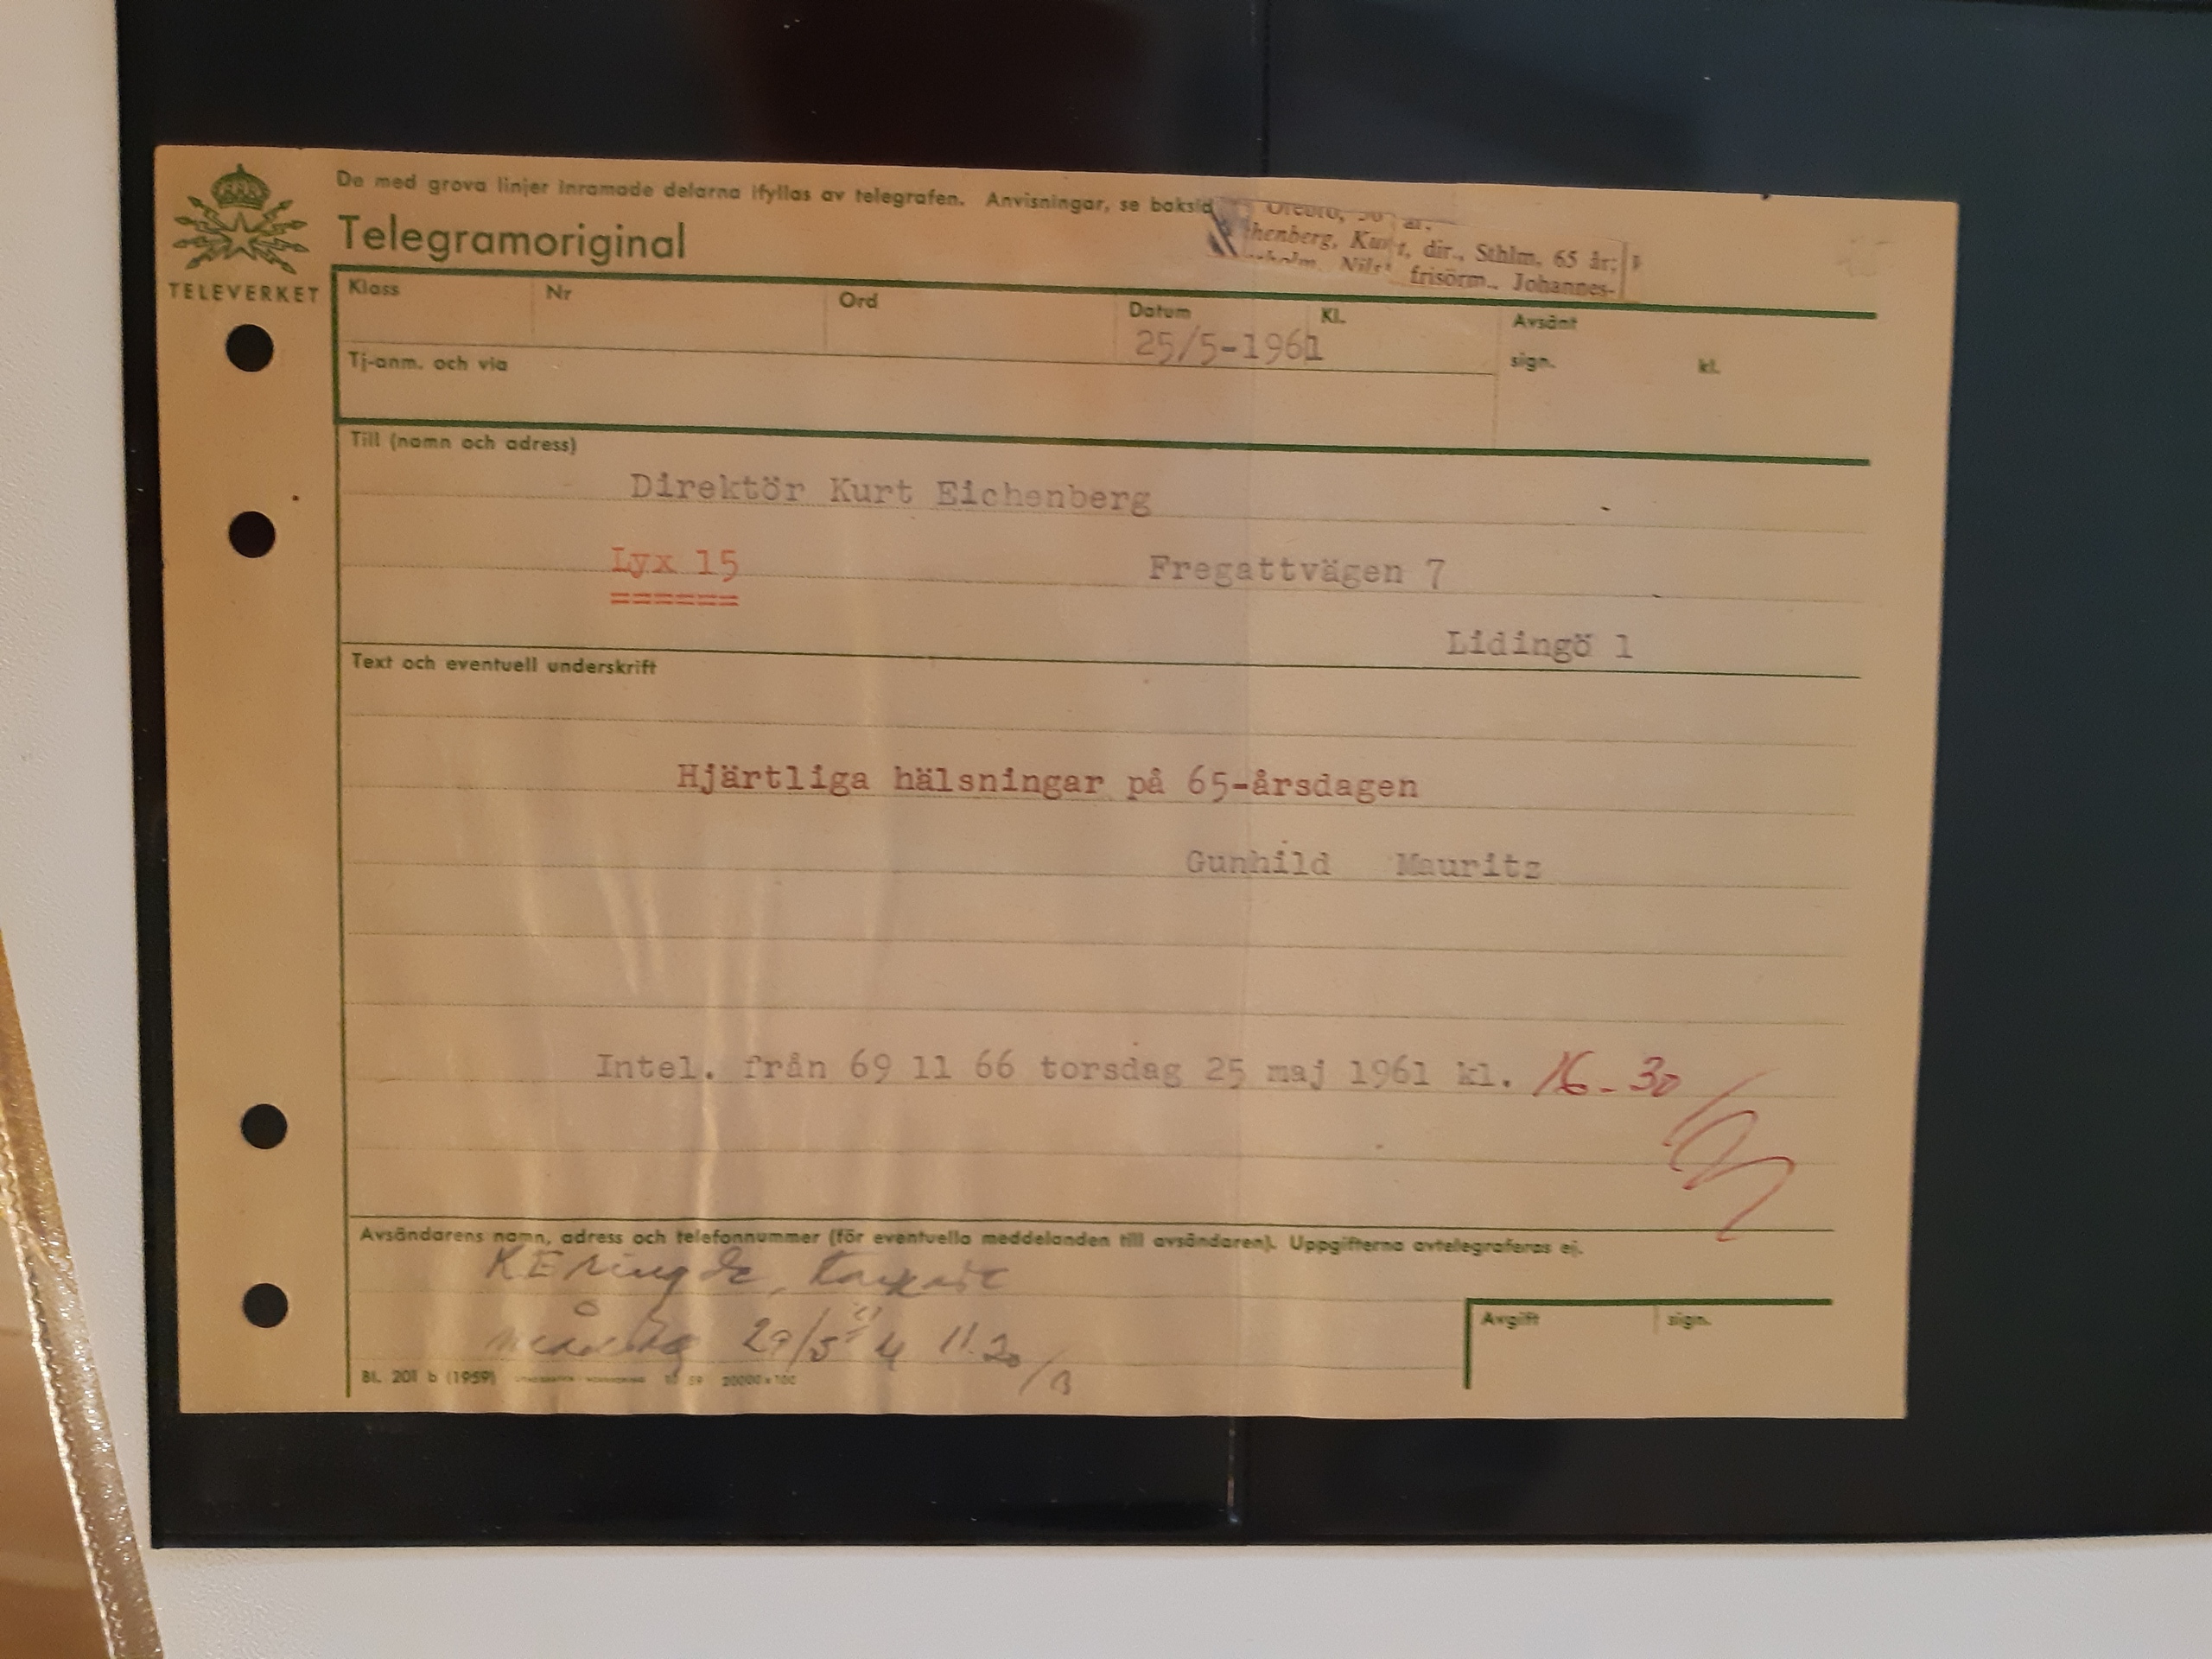 De med grova linjer inramade delarna ifyllas av telegrafen. Anvisningar, se baksid
Telegramoriginal
TELEVERKET
Örebro, 50 år.
henberg, Kurt, dir., Sthlm, 65 år;
holm, Nils, frisörm., Johannes-
Klass Nr Ord Datum Kl. Avsänt
25/5-1961
Tj-anm. och via sign. kl.
Till (namn och adress)
Direktör Kurt Eichenberg
Lyx 15 Fregattvägen 7
======
Lidingö 1
Text och eventuell underskrift
Hjärtliga hälsningar på 65-årsdagen
Gunhild Mauritz
Intel. från 69 11 66 torsdag 25 maj 1961 kl. 16-30
Avsändarens namn, adress och telefonnummer (för eventuella meddelanden till avsändaren). Uppgifterna avtelegraferas ej.
KE ringde,
måndag 29/5 11.20
Avgift sign.
Bl. 201 b (1959) 20000 x 100